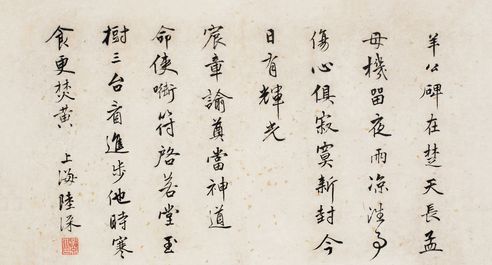 羊公碑在楚天長孟
母機留夜雨涼往事
傷心俱寂寞新封今
日有輝光
宸章諭奠當神道
命使啣符啓若堂玉
樹三台看進步他時寒
食更焚黃 上海陸深